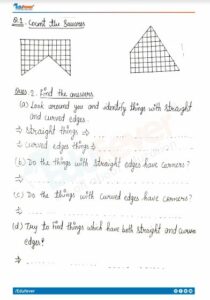 Edufever
Q.1. Count the Squares
Ques. 2. Find the answers
(a) Look around you and identify things with straight
and curved edges.
→ Straight things →
→ Curved edges things →
(b) Do the things with straight edges have corners?
→
(c) Do the things with curved edges have corners?
→
(d) Try to find things which have both straight and curve
edges?
→
/Edufever